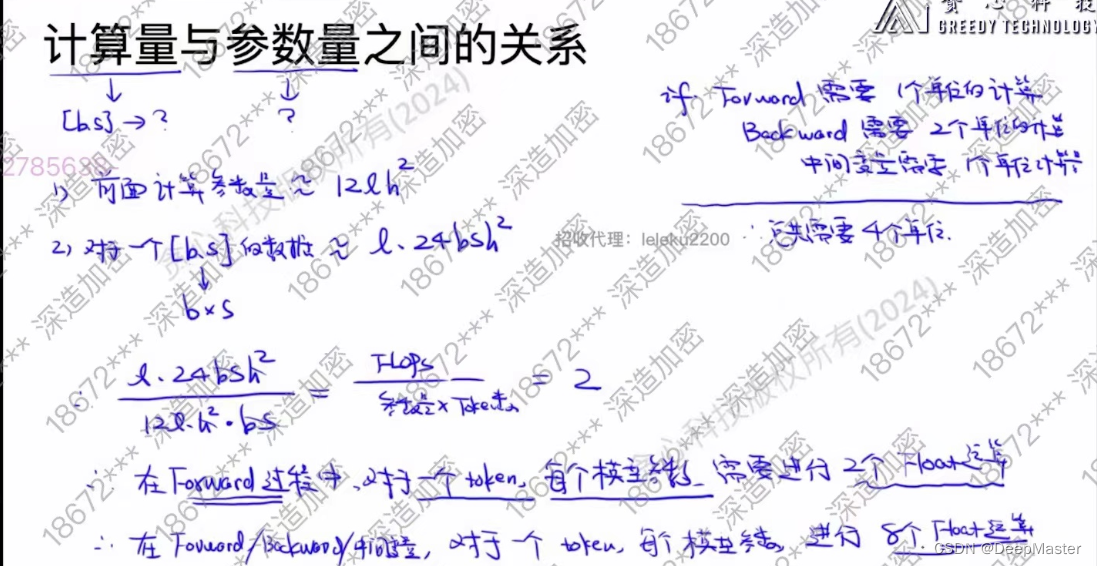 贪心科技
GREEDY TECHNOLOGY
计算量与参数量之间的关系
[b,s] → ?
?
if Forward 需要 1个单位的计算
Backward 需要 2个单位的计算
中间变量需要 1个单位计算
∴ 总共需要 4个单位.
1) 前面计算参数量 ≈ 12lh²
2) 对于一个[b,s]的数据 ≈ l·24bsh²
b×s
招收代理：leleku2200
∴ l·24bsh² / 12l·h²·bs = Flops / 参数量×Token数 = 2
∴ 在Forward过程中,对于一个token,每个模型参数,需要进行2个Float运算
∴ 在Forward/Backward/中间变量,对于一个token,每个模型参数,进行8个Float运算
2785680
18672*** 深造加密
贪心科技版权所有(2024)
CSDN @DeepMaster